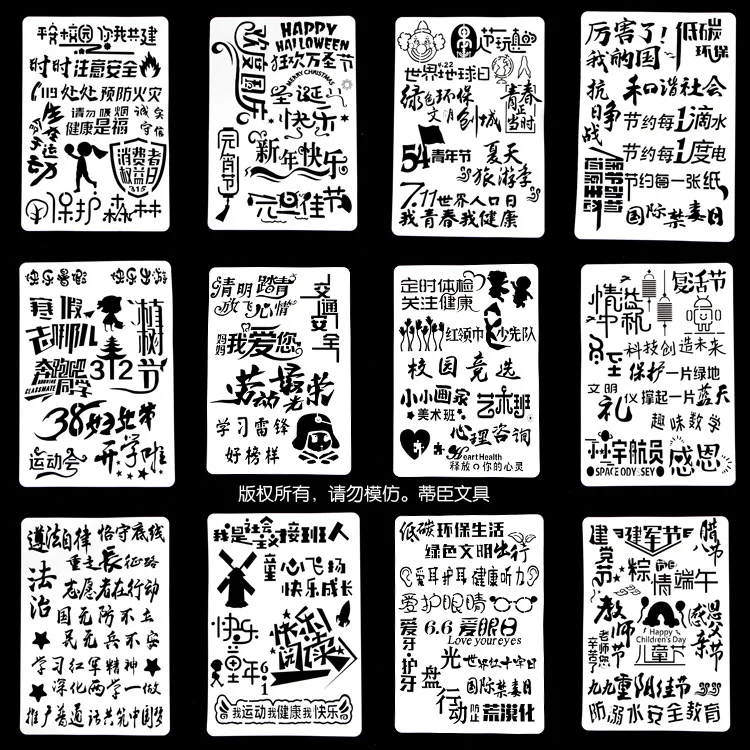 平安校园 你我共建
时时注意安全
119处处预防火灾
生命在运动
请勿吸烟 诚实
健康是福 守信
消费者
权益日
3.15
保护森林
欢度国庆
HAPPY
HALLOWEEN
狂欢万圣节
MERRY CHRISTMAS
圣诞
快乐
元宵节
新年快乐
元旦佳节
节玩真的
4.22
世界地球日
绿色环保
文明创城
青春
正当时
54青年节
夏天
旅游季
7.11世界人口日
我青春我健康
厉害了!
我的国
低碳
环保
抗日争战
和谐社会
节约每1滴水
节约每1度电
节约每一张纸
保护动物
国际禁毒日
快乐暑假
快乐出游
寒假
去哪儿
植树节
奔跑吧
同学
RUNNING
CLASSMATE
312
38妇女节
运动会
开学啦
清明踏青
放飞心情
交通安全
妈妈我爱您
劳动最光荣
学习雷锋
好榜样
定时体检
关注健康
红领巾
少先队
校园竞选
小小画家
美术班
艺术班
心理咨询
Heart Health
释放你的心灵
情系中秋
复活节
科技创造未来
保护一片绿地
文明礼仪
撑起一片蓝天
趣味数学
宇航员
SPACE ODYSSEY
感恩
版权所有，请勿模仿。蒂臣文具
遵法自律 恪守底线
重走长征路
法治
志愿者在行动
国无防不立
民无兵不安
学习红军精神
深化两学一做
推广普通话共筑中国梦
我是社会主义接班人
童心飞扬
快乐成长
快乐
童年6.1
快乐阅读
我运动我健康我快乐
低碳环保生活
绿色文明出行
爱耳护耳 健康听力
爱护眼睛
爱牙·护牙
6.6爱眼日
Love your eyes
光盘行动
世界红十字日
国际禁毒日
防止荒漠化
建党节
建军节
腊八节
粽情端午
教师节
老师您
辛苦了
Happy
Children's Day
儿童节
感恩父亲节
九九重阳佳节
防溺水安全教育